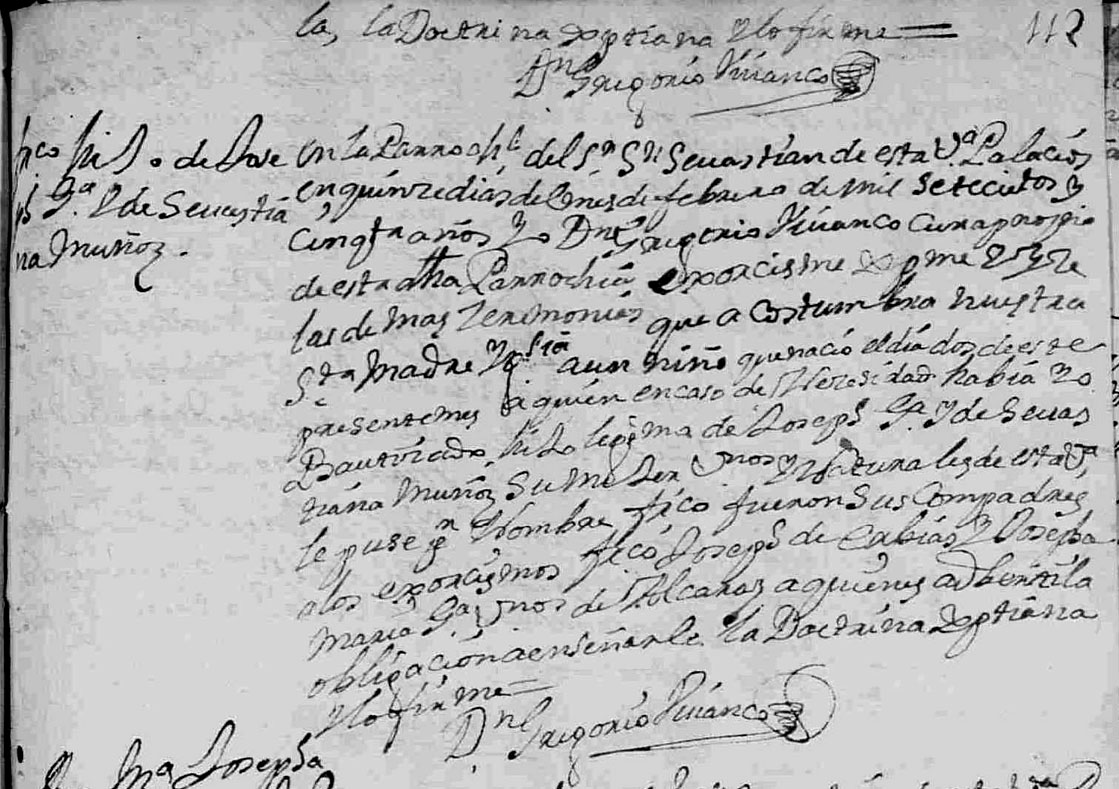 la, la Doctrina Xptiana y lo firme
112
Dn Gregorio Vivanco
fr.co hiJo de Jose
ph Ga. Y de Sevastia
na Muñoz.
En la Parrochl. del Sr. Sn Sevastian de esta Va. Palacios
en quinze dias del mes de febrero de mil setecientos y
cinqta años Yo Dn Gregorio Vivanco Cura propio
de esta dha Parrochia exorcisme
las demas Zeremonias que acostumbra nuestra
Sta Madre Yglsia a un niño que nacio el dia dos de este
presente mes a quien en caso de Nezesidad habia Yo
Bautizado hiJo legitimo de Joseph Ga. y de Sevas
tiana Muñoz su muJer Vnos y Naturales de esta Va.
le puse pr Nombre frco fueron sus Compadres
a los exorcismos frco Joseph de Cubias y Josepha
Maria Ga. Vnos de Alcaraz a quienes adverti la
obligacion a enseñarle la Doctrina Xptiana
y lo firme
Dn Gregorio Vivanco
Ma Josepha